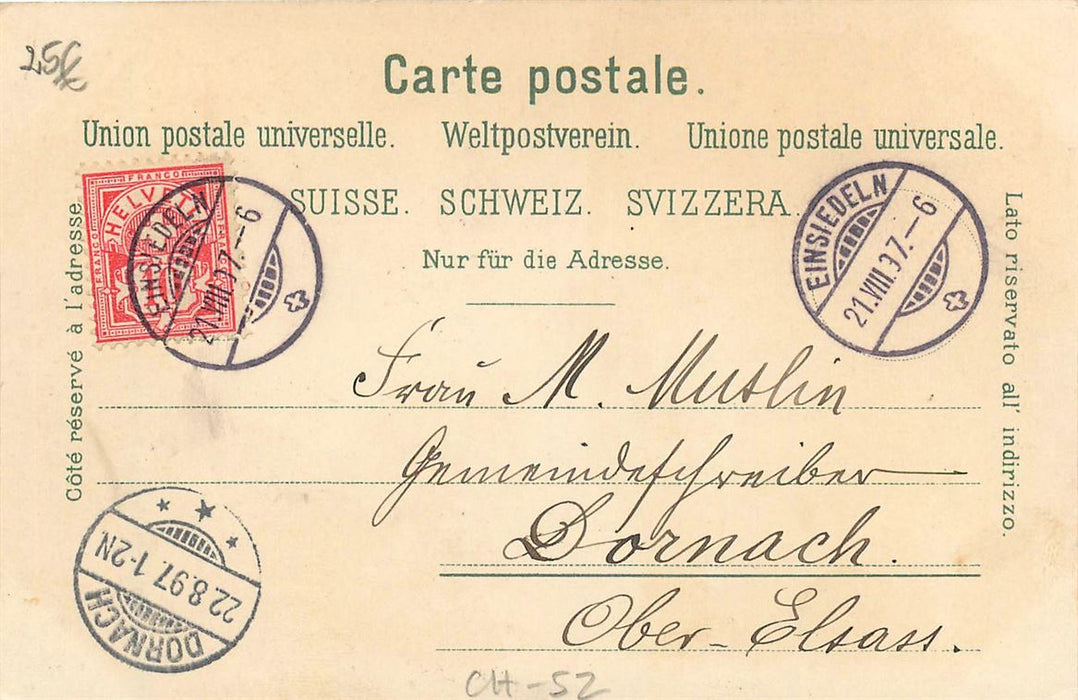 25€
Carte postale.
Union postale universelle. Weltpostverein. Unione postale universale.
SUISSE. SCHWEIZ. SVIZZERA.
Nur für die Adresse.
Côté réservé à l'adresse.
Lato riservato all' indirizzo.
FRANCO
FRANCO
FRANCO
HELVETIA
EINSIEDELN
21.VIII.97.-6
EINSIEDELN
21.VIII.97.-6
Frau M. Mutlin
Gemeindeschreiber
Dornach.
Ober-Elsass.
22.8.97. 1-2N
DORNACH
CH-52